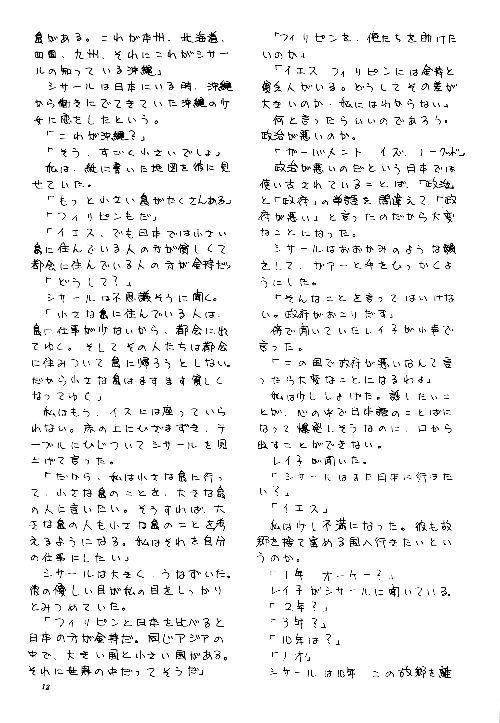 島がある。これが本州、北海道、
四国、九州、それにこれがシサー
ルの知っている沖縄」
シサールは日本にいる時、沖縄
から働きにでてきていた沖縄の少
女に恋をしたという。
「これが沖縄？」
「そう、すごく小さいでしょ」
私は、紙に書いた地図を彼に見
せていた。
「もっと小さい島がたくさんある」
「フィリピンもだ」
「イエス、でも日本では小さい
島に住んでいる人の方が貧しくて
都会に住んでいる人の方が金持だ」
「どうして？」
シサールは不思議そうに聞く。
「小さな島に住んでいる人は、
島に仕事が少ないから、都会に出
てゆく。そしてその人たちは都会
に住みついて島に帰ろうとしない。
だから小さな島はますます貧しく
なってゆく」
私はもう、イスには座っていら
れない。床の上にひざまずき、テ
ーブルにひじついてシサールを見
上げて言った。
「だから、私は小さな島に行っ
て、小さな島のことを、大きな島
の人に言いたい。そうすれば、大
きな島の人も小さな島のことを考
えるようになる。私はそれを自分
の仕事にしたい」
シサールは大きく、うなずいた。
彼の優しい目が私の目をしっかり
とみつめていた。
「フィリピンと日本を比べると
日本の方が金持だ。同じアジアの
中で、大きい国と小さい国がある。
それに世界の中だってそうだ」
12
「フィリピンを、俺たちを助けた
いのか」
「イエス フィリピンには金持と
貧乏人がいる。どうしてその差が
大きいのか、私にはわからない」
何と言ったらいいのであろう。
政治が悪いのか。
「ガーバメント イズ、ノーグッド」
政治が悪いのだという日本では
使い古されていることば、「政治」
と「政府」の単語を間違えて、「政
府が悪い」と言ったのだから大変
なことになった。
シサールはおおかみのような顔
をして、ガァーと手をひっかくよ
うにした。
「そんなことを言ってはいけな
い。政府がおこりだす」
傍で聞いていたレイ子が小声で
言った。
「この国で政府が悪いなんて言
ったら大変なことになるわよ」
私は少ししょげた。話したいこ
とが、心の中で日本語のことばに
なって爆発しそうなのに、口から
出すことができない。
レイ子が聞いた。
「シサールはまた日本に行きた
い？」
「イエス」
私は少し不満になった。彼も故
郷を捨て富める国へ行きたいとい
うのか。
「1年 オーケー？」
レイ子がシサールに聞いている。
「2年？」
「3年？」
「10年は？」
「ノオ」
シサールは10年 この故郷を離